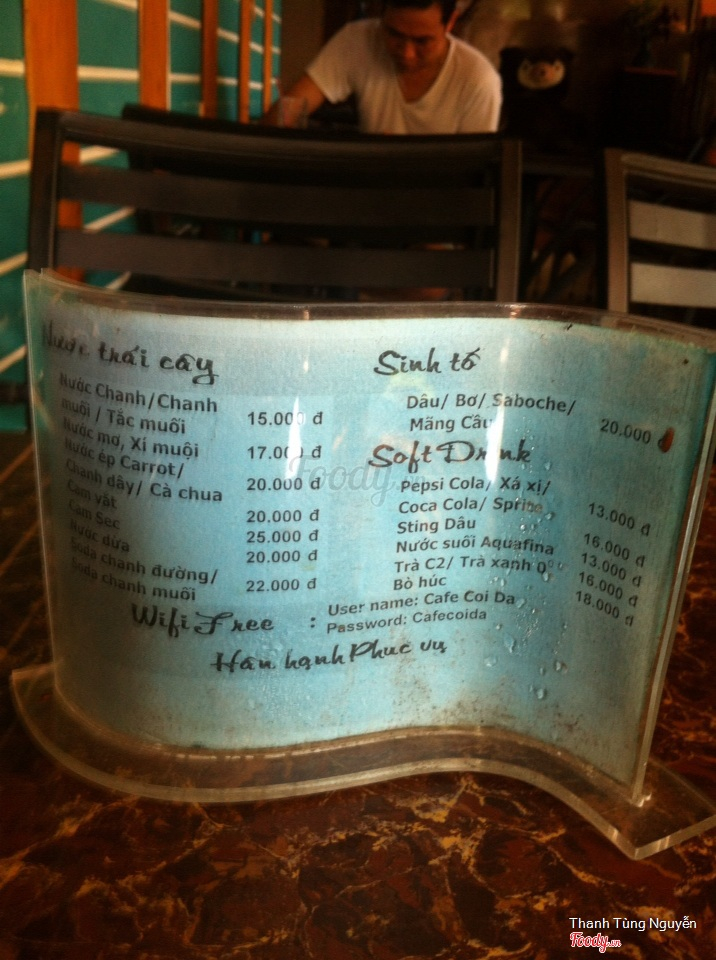 Nước trái cây
Nước Chanh/Chanh
muối / Tắc muối 15.000 đ
Nước mơ, Xí muội 17.000 đ
Nước ép Carrot/
Chanh dây/ Cà chua 20.000 đ
Cam vắt 20.000 đ
Cam Sec 25.000 đ
Nước dừa 20.000 đ
Soda chanh đường/
Soda chanh muối 22.000 đ
Sinh tố
Dâu/ Bơ/ Saboche/
Mãng Cầu 20.000 đ
Soft Drink
Pepsi Cola/ Xá xị/
Coca Cola/ Sprite 13.000 đ
Sting Dâu 16.000 đ
Nước suối Aquafina 13.000 đ
Trà C2/ Trà xanh 0° 16.000 đ
Bò húc 18.000 đ
Wifi Free : User name: Cafe Coi Da
Password: Cafecoida
Hân hạnh Phuc vụ
Foody
Thanh Tùng Nguyễn
Foody.vn